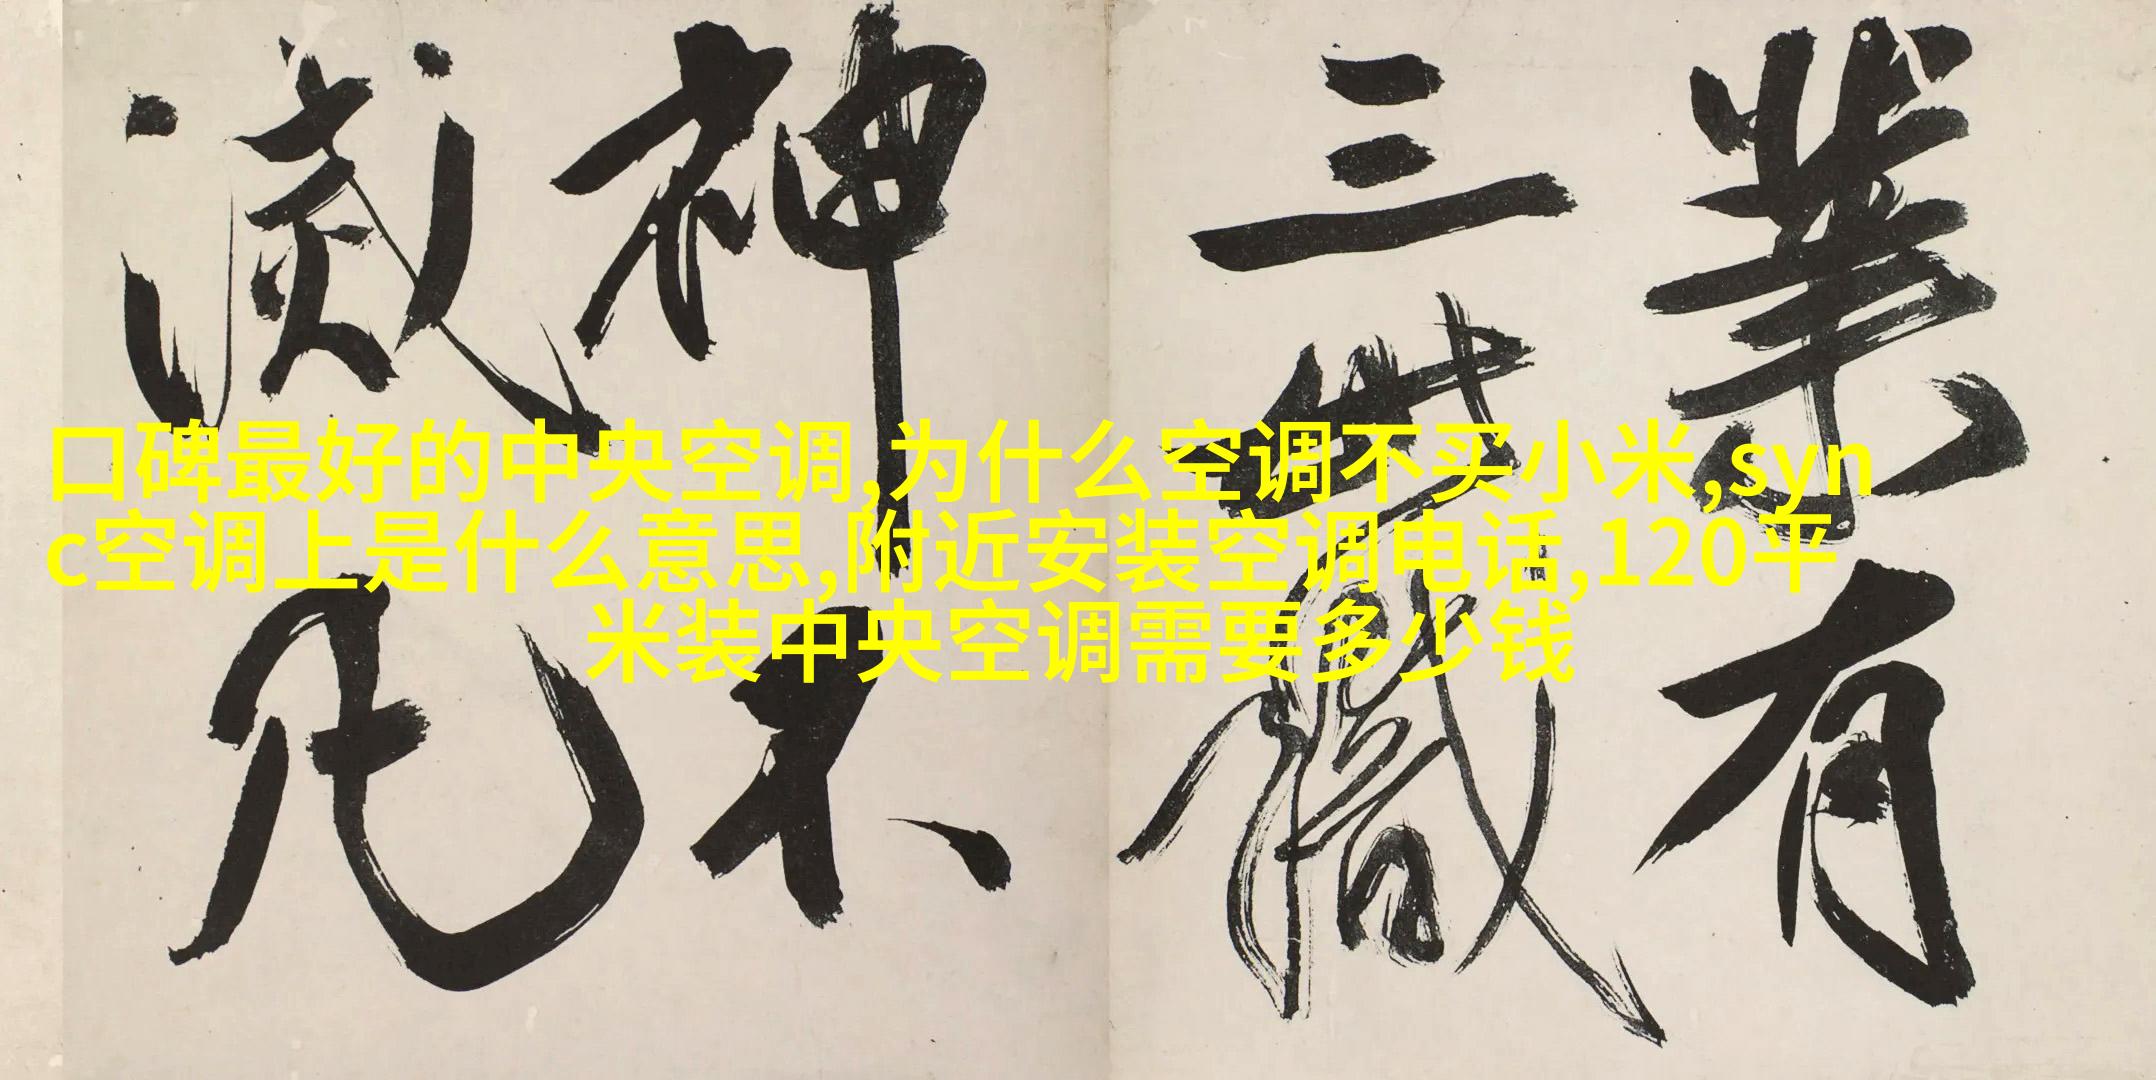 業有
三世職
神不
滅凡
口碑最好的中央空调,为什么空调不买小米,syn
c空调上是什么意思,附近安装空调电话,120平
米装中央空调需要多少钱